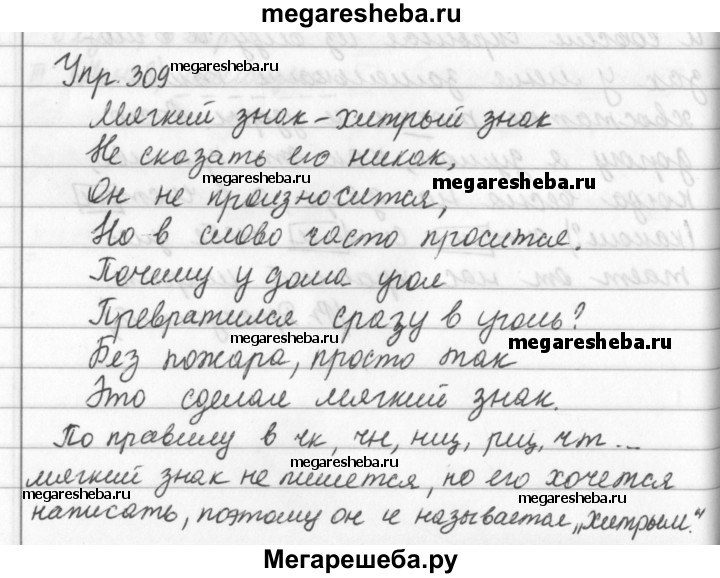 megaresheba.ru
Упр. 309
megaresheba.ru
Мягкий знак – хитрый знак
Не сказать его никак,
megaresheba.ru
megaresheba.ru
Он не произносится,
Но в слово часто просится.
megaresheba.ru
Почему у дома угол
Превратился сразу в уголь?
megaresheba.ru
megaresheba.ru
Без пожара, просто так
Это сделал мягкий знак.
По правилу в чк, чн, нщ, рщ, чт ...
megaresheba.ru
мягкий знак не пишется, но его хочется
megaresheba.ru
megaresheba.ru
написать, поэтому он и называется „хитрым."
Мегарешеба.ру